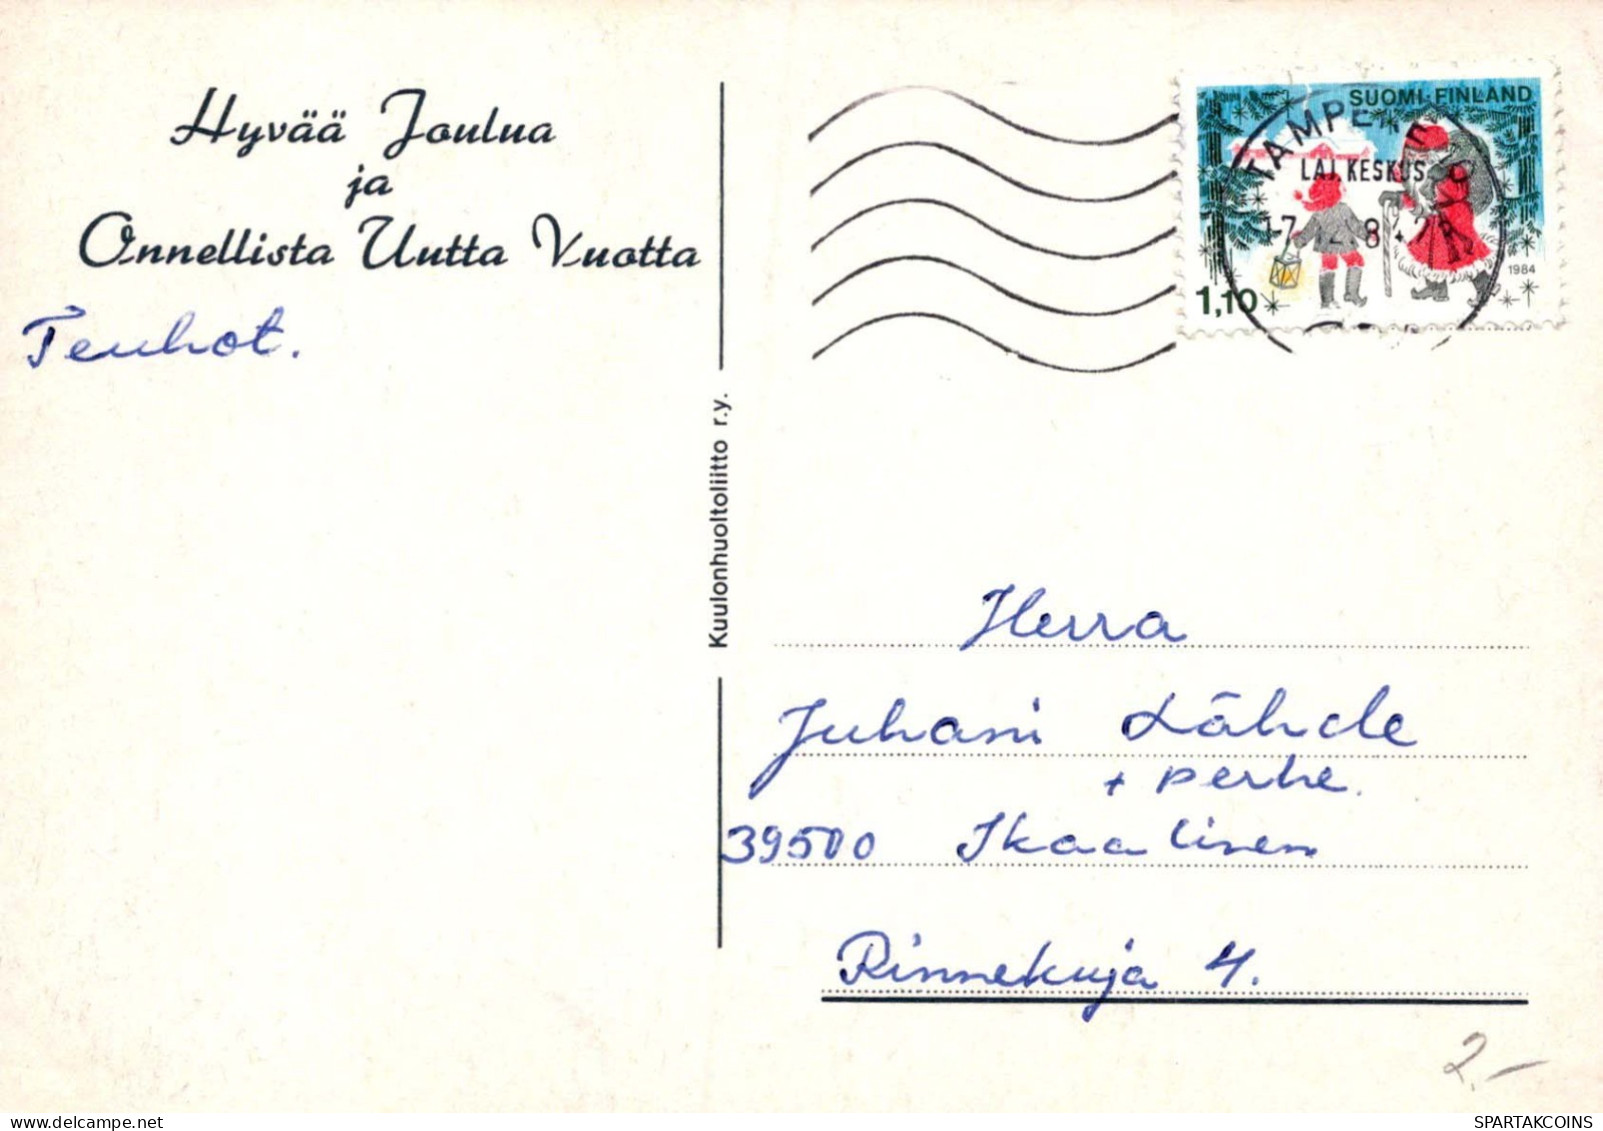 Hyvää Joulua
ja
Onnellista Uutta Vuotta
Teuhot.
Kuulonhuoltoliitto r.y.
SUOMI-FINLAND
TAMPERE
LAJ. KESKUS
1984
1,10
Herra
Juhani Lähde
+ perhe.
39500 Ikaalinen
Rinnekuja 4.
2.-
SPARTAKCOINS